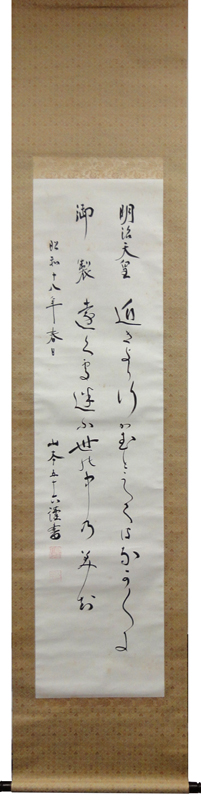 明治天皇 近きより行かむと
御製 遠く迷ふ世の中乃美知
昭和十八年春日
山本五十六謹書